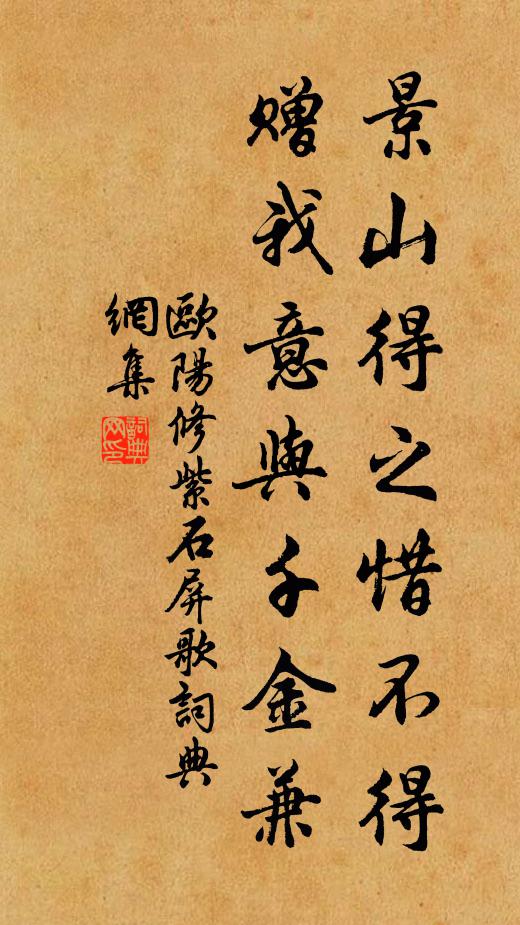 景山得之惜不得
贈我意與千金兼
歐陽修紫石屏歌詞典
網集
詞典
网印